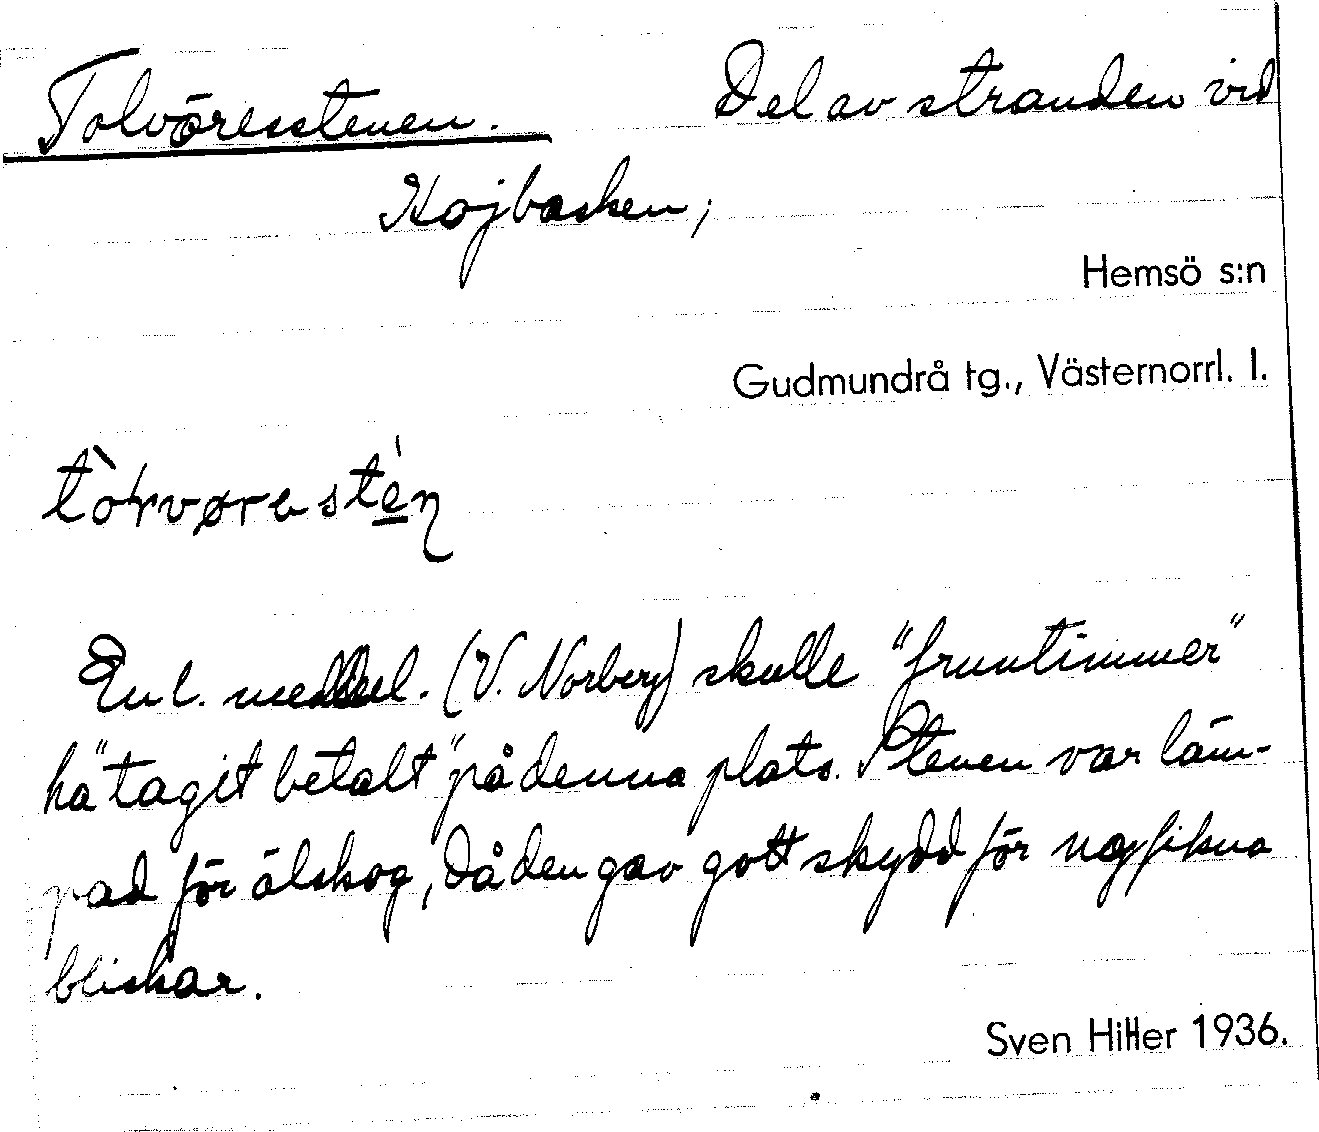 Tolvöresstenen. Del av stranden vid
Kojbacken;
Hemsö s:n
Gudmundrå tg., Västernorrl. l.
Enl. meddel. (V. Norberg) skulle "fruntimmer"
ha "tagit betalt" på denna plats. Stenen var läm-
pad för älskog, då den gav gott skydd för nyfikna
blickar.
Sven Hiller 1936.